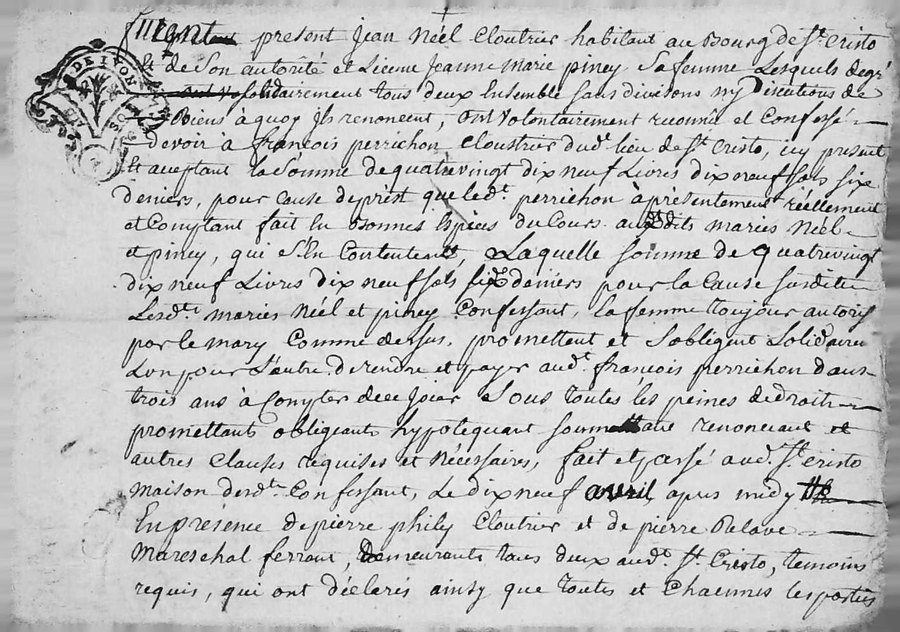 furent present Jean Néel Cloutrier habitant au Bourg de St. Cristo
Et de Son autorité et Licence Jeanne Marie piney Sa femme Lesquels de gré
solidairement tous deux Ensemble sans divisions ny Discutions de
Biens à quoy Ils renoncent, ont volontairement reconnu et Confessé
devoir à françois perrichon Cloustrier dud. lieu de St. Cristo, icy present
Et aceptant la Somme de quatrevingt dix neuf Livres dix neuf sols six
deniers, pour Cause de prest que led. perrichon à présentement réellement
et Comptant fait En Bonnes Espèces du Cours auxdits mariés Néel
et piney, qui S'En Contentent, Laquelle somme de quatrevingt
dix neuf Livres dix neuf sols six deniers pour la Cause susditte
Lesdt. mariés Néel et piney Confessant, la femme toujour autorisé
par le mary Comme dessus, promettent et Sobligent Solidairem
Lun pour L'autre de rendre et payer aud. françois perrichon dans
trois ans à Compter de ce Joier Sous toutes les peines de droit
promettants obligeants hypotequant renonceant et
autres Clauses requises et nécessaires, fait et passé aud. St. Cristo
maison desdt. Confessant, Le dix neuf avril apres midy
En présence de pierre phily Cloutrier et de pierre Relave
Mareschal ferrant, Demeurants tous deux aud. St. Cristo, temoins
requis, qui ont déclarés ainsy que toutes et Chacunes les parties